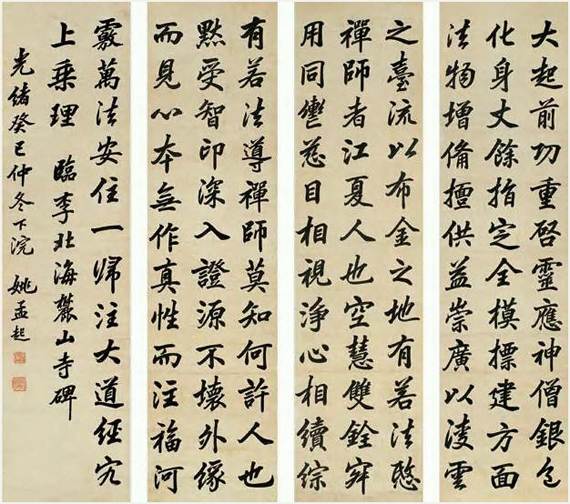 大起前功重啓靈應神僧銀色
化身丈餘指定全模標建方面
法物增備擅供益崇廣以淩雲
之臺流以布金之地有若法愍
禪師者江夏人也空慧雙銓寂
用同轡慈目相視淨心相續綜
有若法導禪師莫知何許人也
默受智印深入證源不壞外緣
而見心本無作真性而注福河
覈萬法安住一歸注大道經究
上乘理 臨李北海麓山寺碑
光緒癸巳仲冬下浣 姚孟起